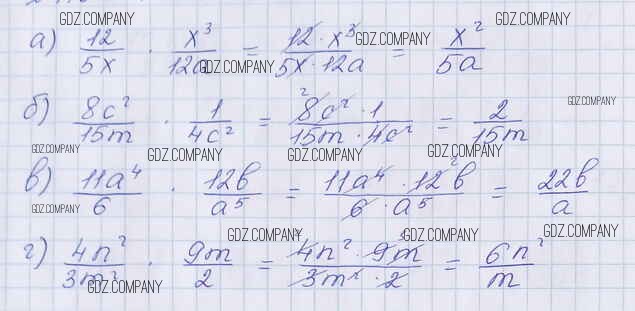 GDZ.COMPANY GDZ.COMPANY
а) 12/5x · x³/12a = 12 · x³/5x · 12a = x²/5a
GDZ.COMPANY GDZ.COMPANY
GDZ.COMPANY
б) 8c²/15m · 1/4c² = ²8c² · 1/15m · 4c² = 2/15m
GDZ.COMPANY GDZ.COMPANY GDZ.COMPANY GDZ.COMPANY
в) 11a⁴/6 · 12b/a⁵ = 11a⁴ · 12² b/6 · a⁵ = 22b/a
GDZ.COMPANY
GDZ.COMPANY GDZ.COMPANY GDZ.COMPANY
г) 4n²/3m² · 9m/2 = 4n² · 9m/3m² · 2 = 6n²/m
GDZ.COMPANY